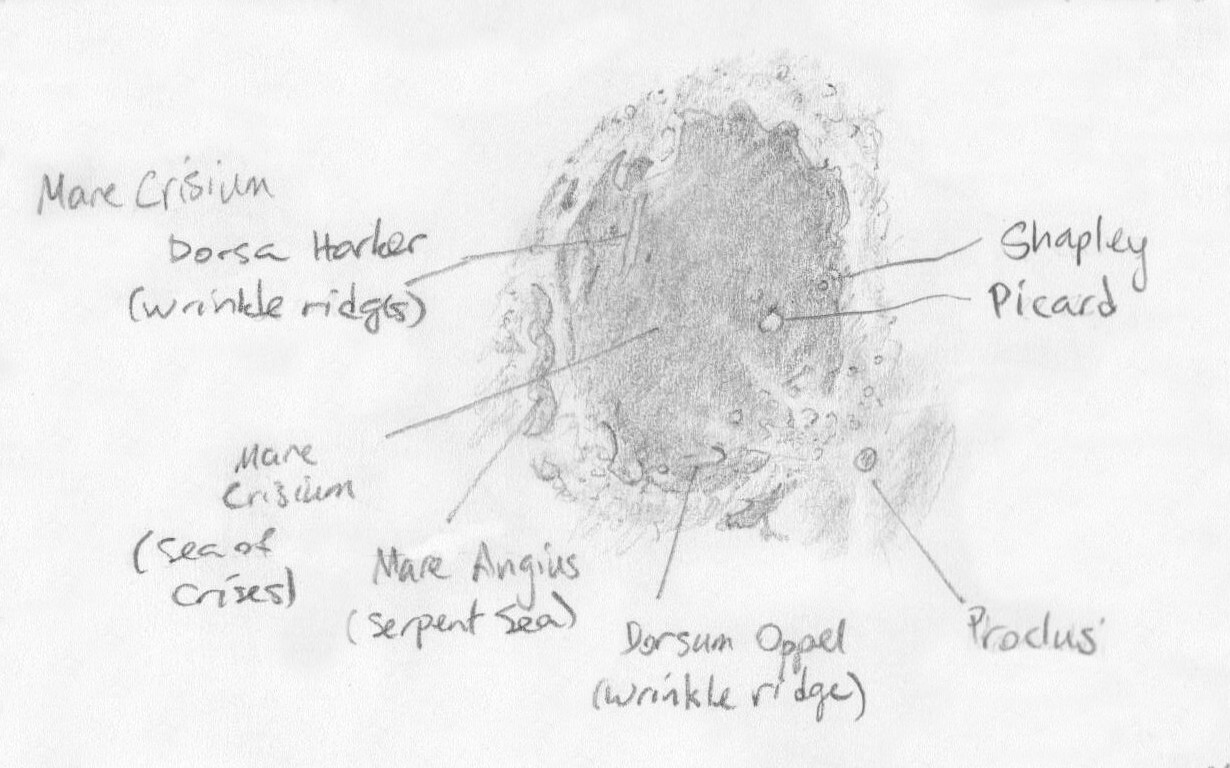 Mare Crisium
Dorsa Harker
(wrinkle ridg(s)
Shapley
Picard
Mare
Crisium
(Sea of
Crises)
Mare Angius
(Serpent Sea)
Dorsum Oppel
(wrinkle ridge)
Proclus